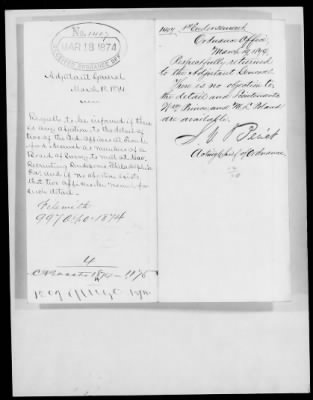 MAR 18 1874
Adjutant General
March 18, 1874
Requests to be informed if there
is any objection to the detail of
two of the Ord. Officers at Frank-
ford Arsenal as members of a
Board of Survey to meet at
Recruiting Rendezvous Philadelphia
Pa. and if no objection exists
that two officers be named for
such detail.
File with
997 A.G.O. 1874
4
1st Endorsement.
Ordnance Office,
March 1874
Respectfully returned
to the Adjutant General.
There is no objection to
the detail and Lieutenants
Wm. Prince and
are available.
Acting Chief of Ordnance